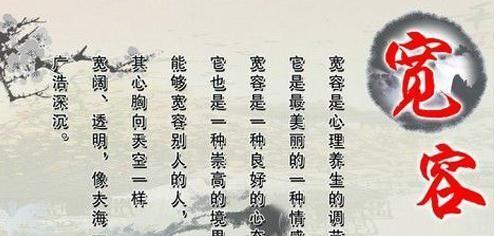 宽容
宽容是心理养生的调
它是最美丽的一种情感
宽容是一种良好的心态
它也是一种崇高的境界
能够宽容别人的人，
其心胸向天空一样
宽阔、透明，像大海一
广浩深沉。